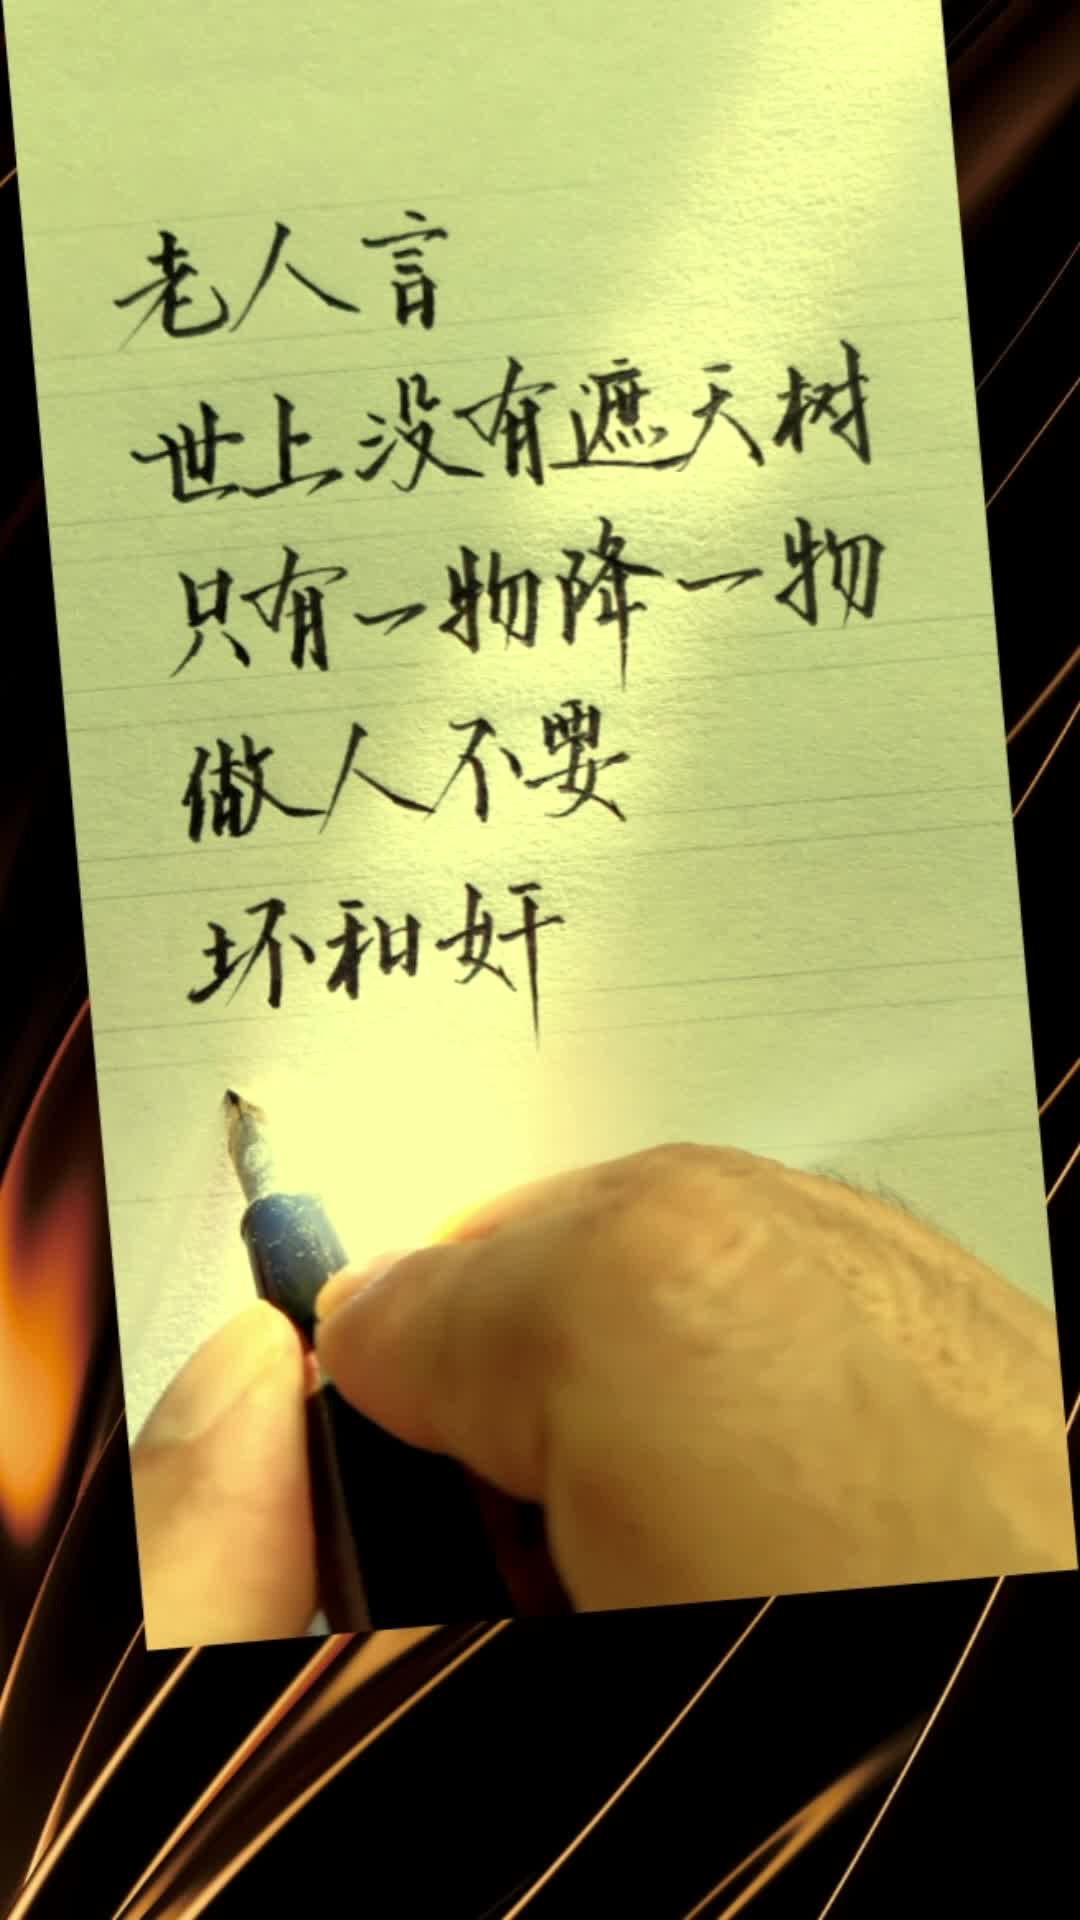 老人言
世上没有遮天树
只有一物降一物
做人不要
坏和奸